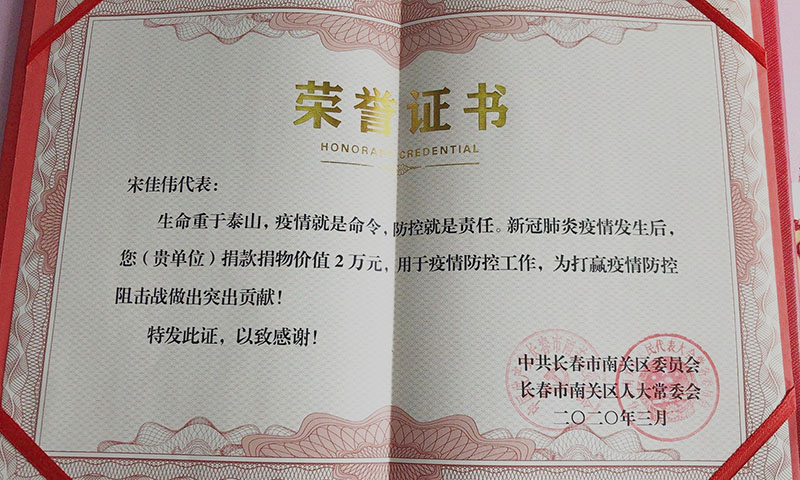 荣誉证书
HONORABLE CREDENTIAL
宋佳伟代表：
生命重于泰山，疫情就是命令，防控就是责任。新冠肺炎疫情发生后，
您（贵单位）捐款捐物价值2万元，用于疫情防控工作，为打赢疫情防控
阻击战做出突出贡献！
特发此证，以致感谢！
中共长春市南关区委员会
长春市南关区人大常委会
二〇二〇年三月